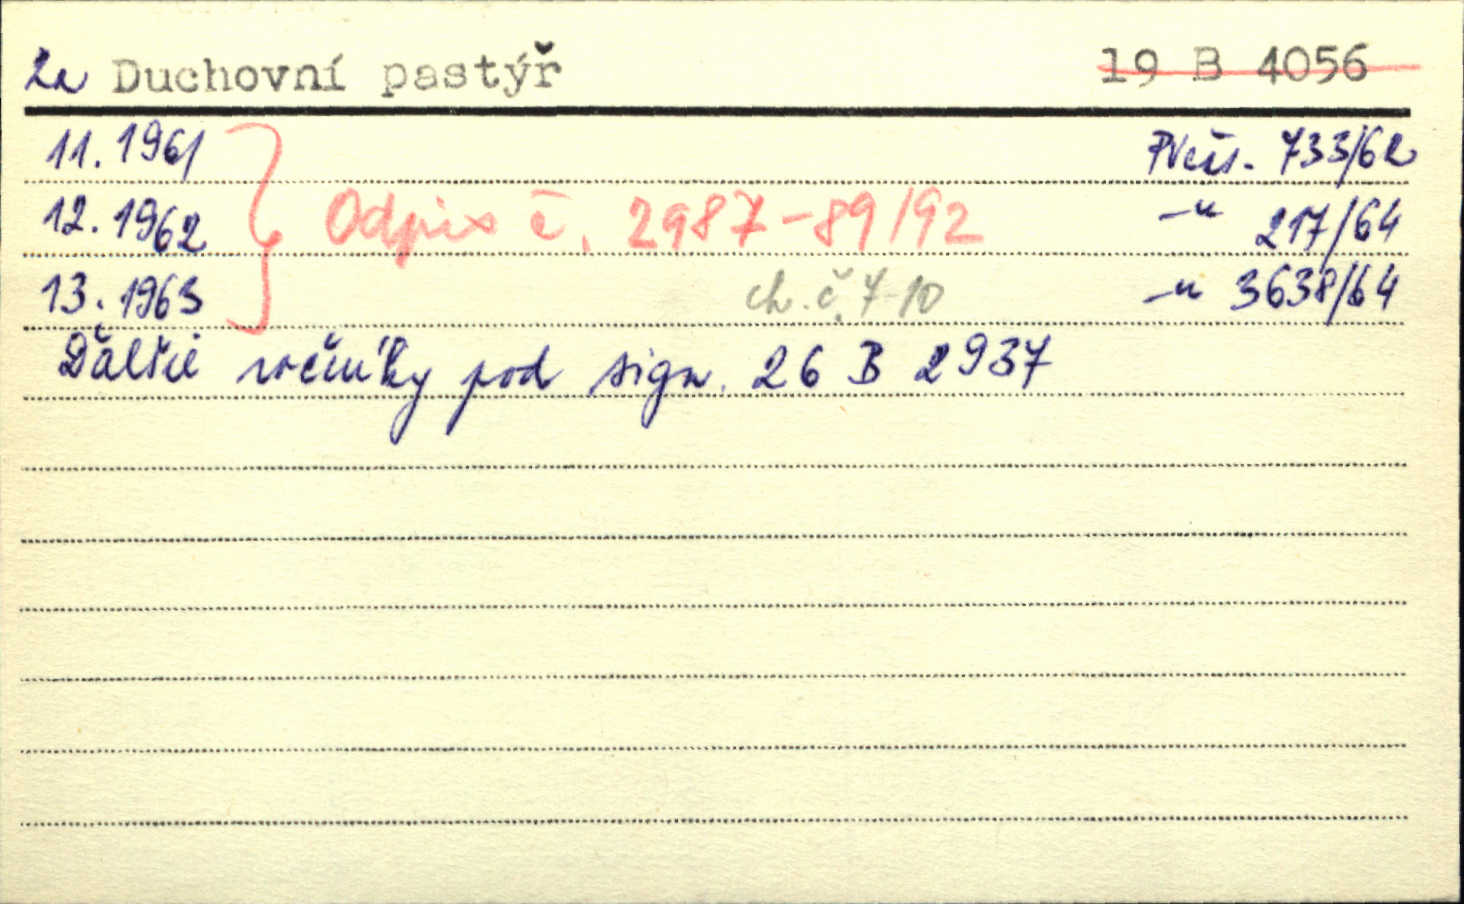 2a Duchovní pastýř 19 B 4056
11. 1961 733/62
12. 1962 Odpis č. 2987-89/92 -"- 217/64
13. 1963 ch. č. 7-10 -"- 3638/64
Ďalšie ročníky pod sign. 26 B 2937